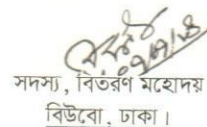 সদস্য, বিতরণ মহোদয়
বিউবো, ঢাকা।